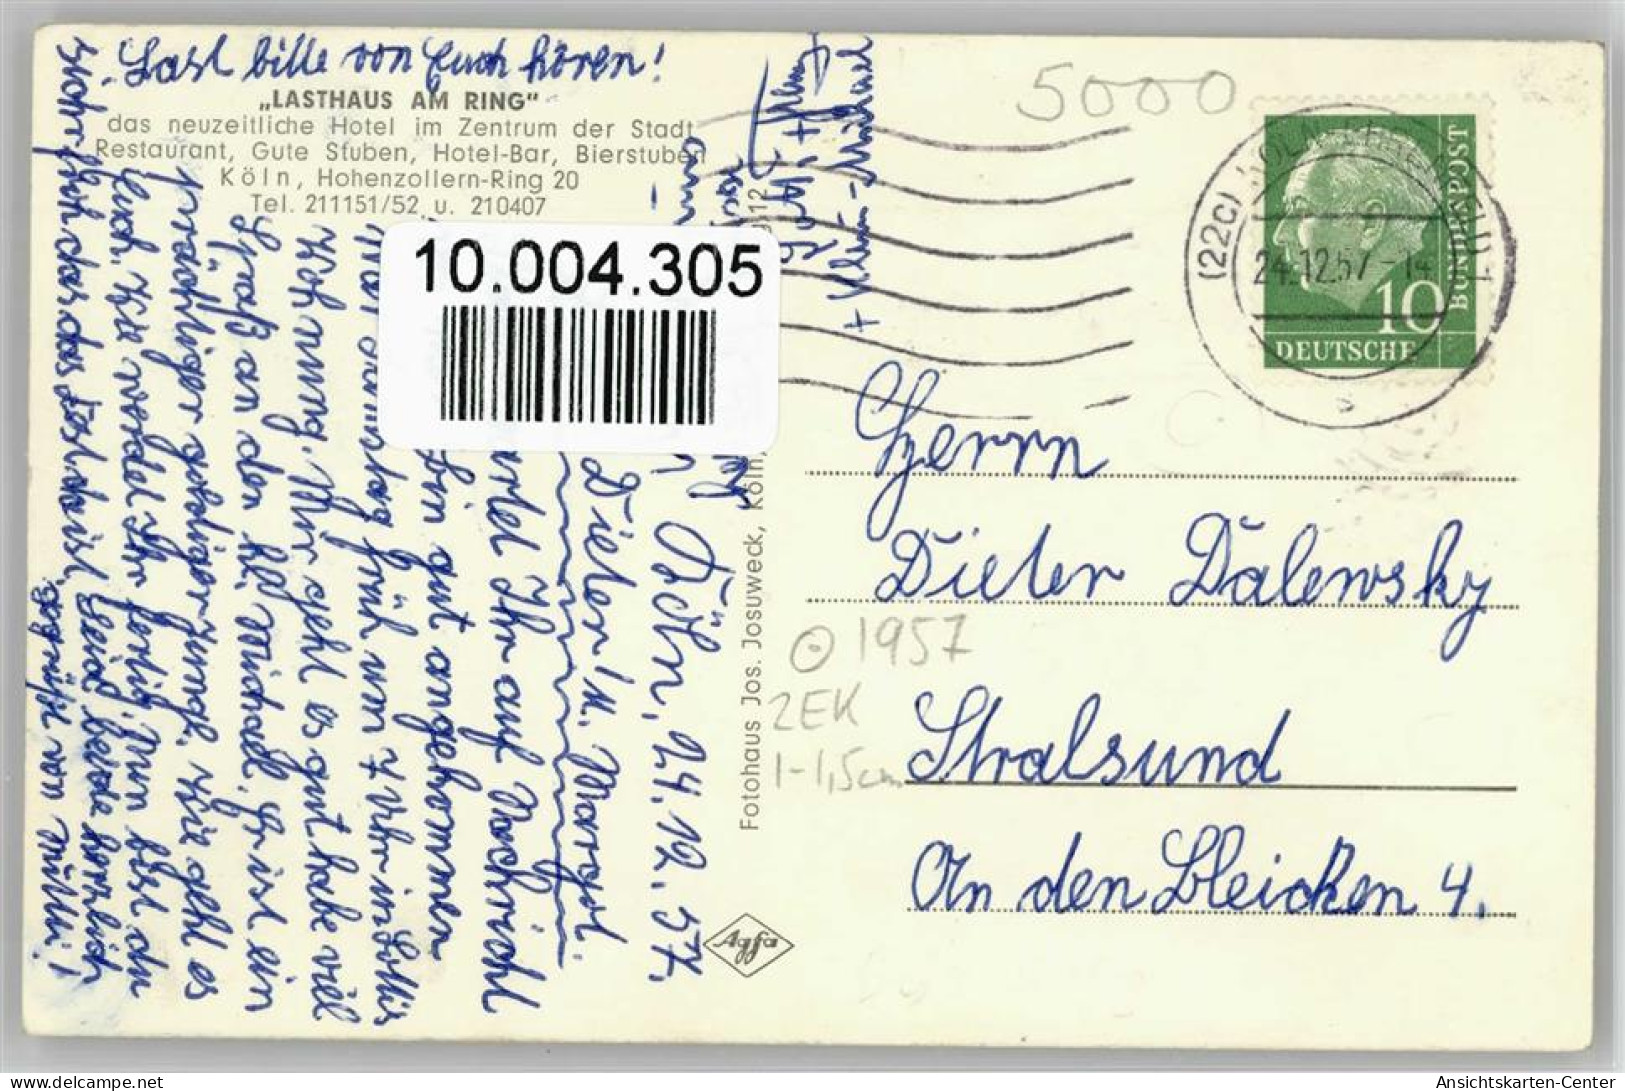 Last bitte von Euch hören!
„LASTHAUS AM RING"
das neuzeitliche Hotel im Zentrum der Stadt
Restaurant, Gute Stuben, Hotel-Bar, Bierstuben
Köln, Hohenzollern-Ring 20
Tel. 211151/52 u. 210407
10.004.305
Köln, 24.12.57.
Dieter u. Margot.
Ihr auf Nachricht
bin gut angekommen
war Samstag früh um 7 Uhr in Lottis
Wohnung. Mir geht es gut habe viel
Spaß an den kl. Michael. Er ist ein
prächtiger goldiger Junge. Wie geht es
Euch. Wie werdet Ihr fertig. Nun bist du
froh das das Fest da ist. Seid beide herzlich
gegrüßt von Mutti!
+ Klein-Michael
Fotohaus Jos. Josuweck, Köln,
Agfa
5000
(22c)
24.12.57-14
10
DEUTSCHE
BUNDESPOST
Herrn
Dieter Dalewsky
1957
2EK
1-1,5cm
Stralsund
An den Bleichen 4.
Ansichtskarten-Center